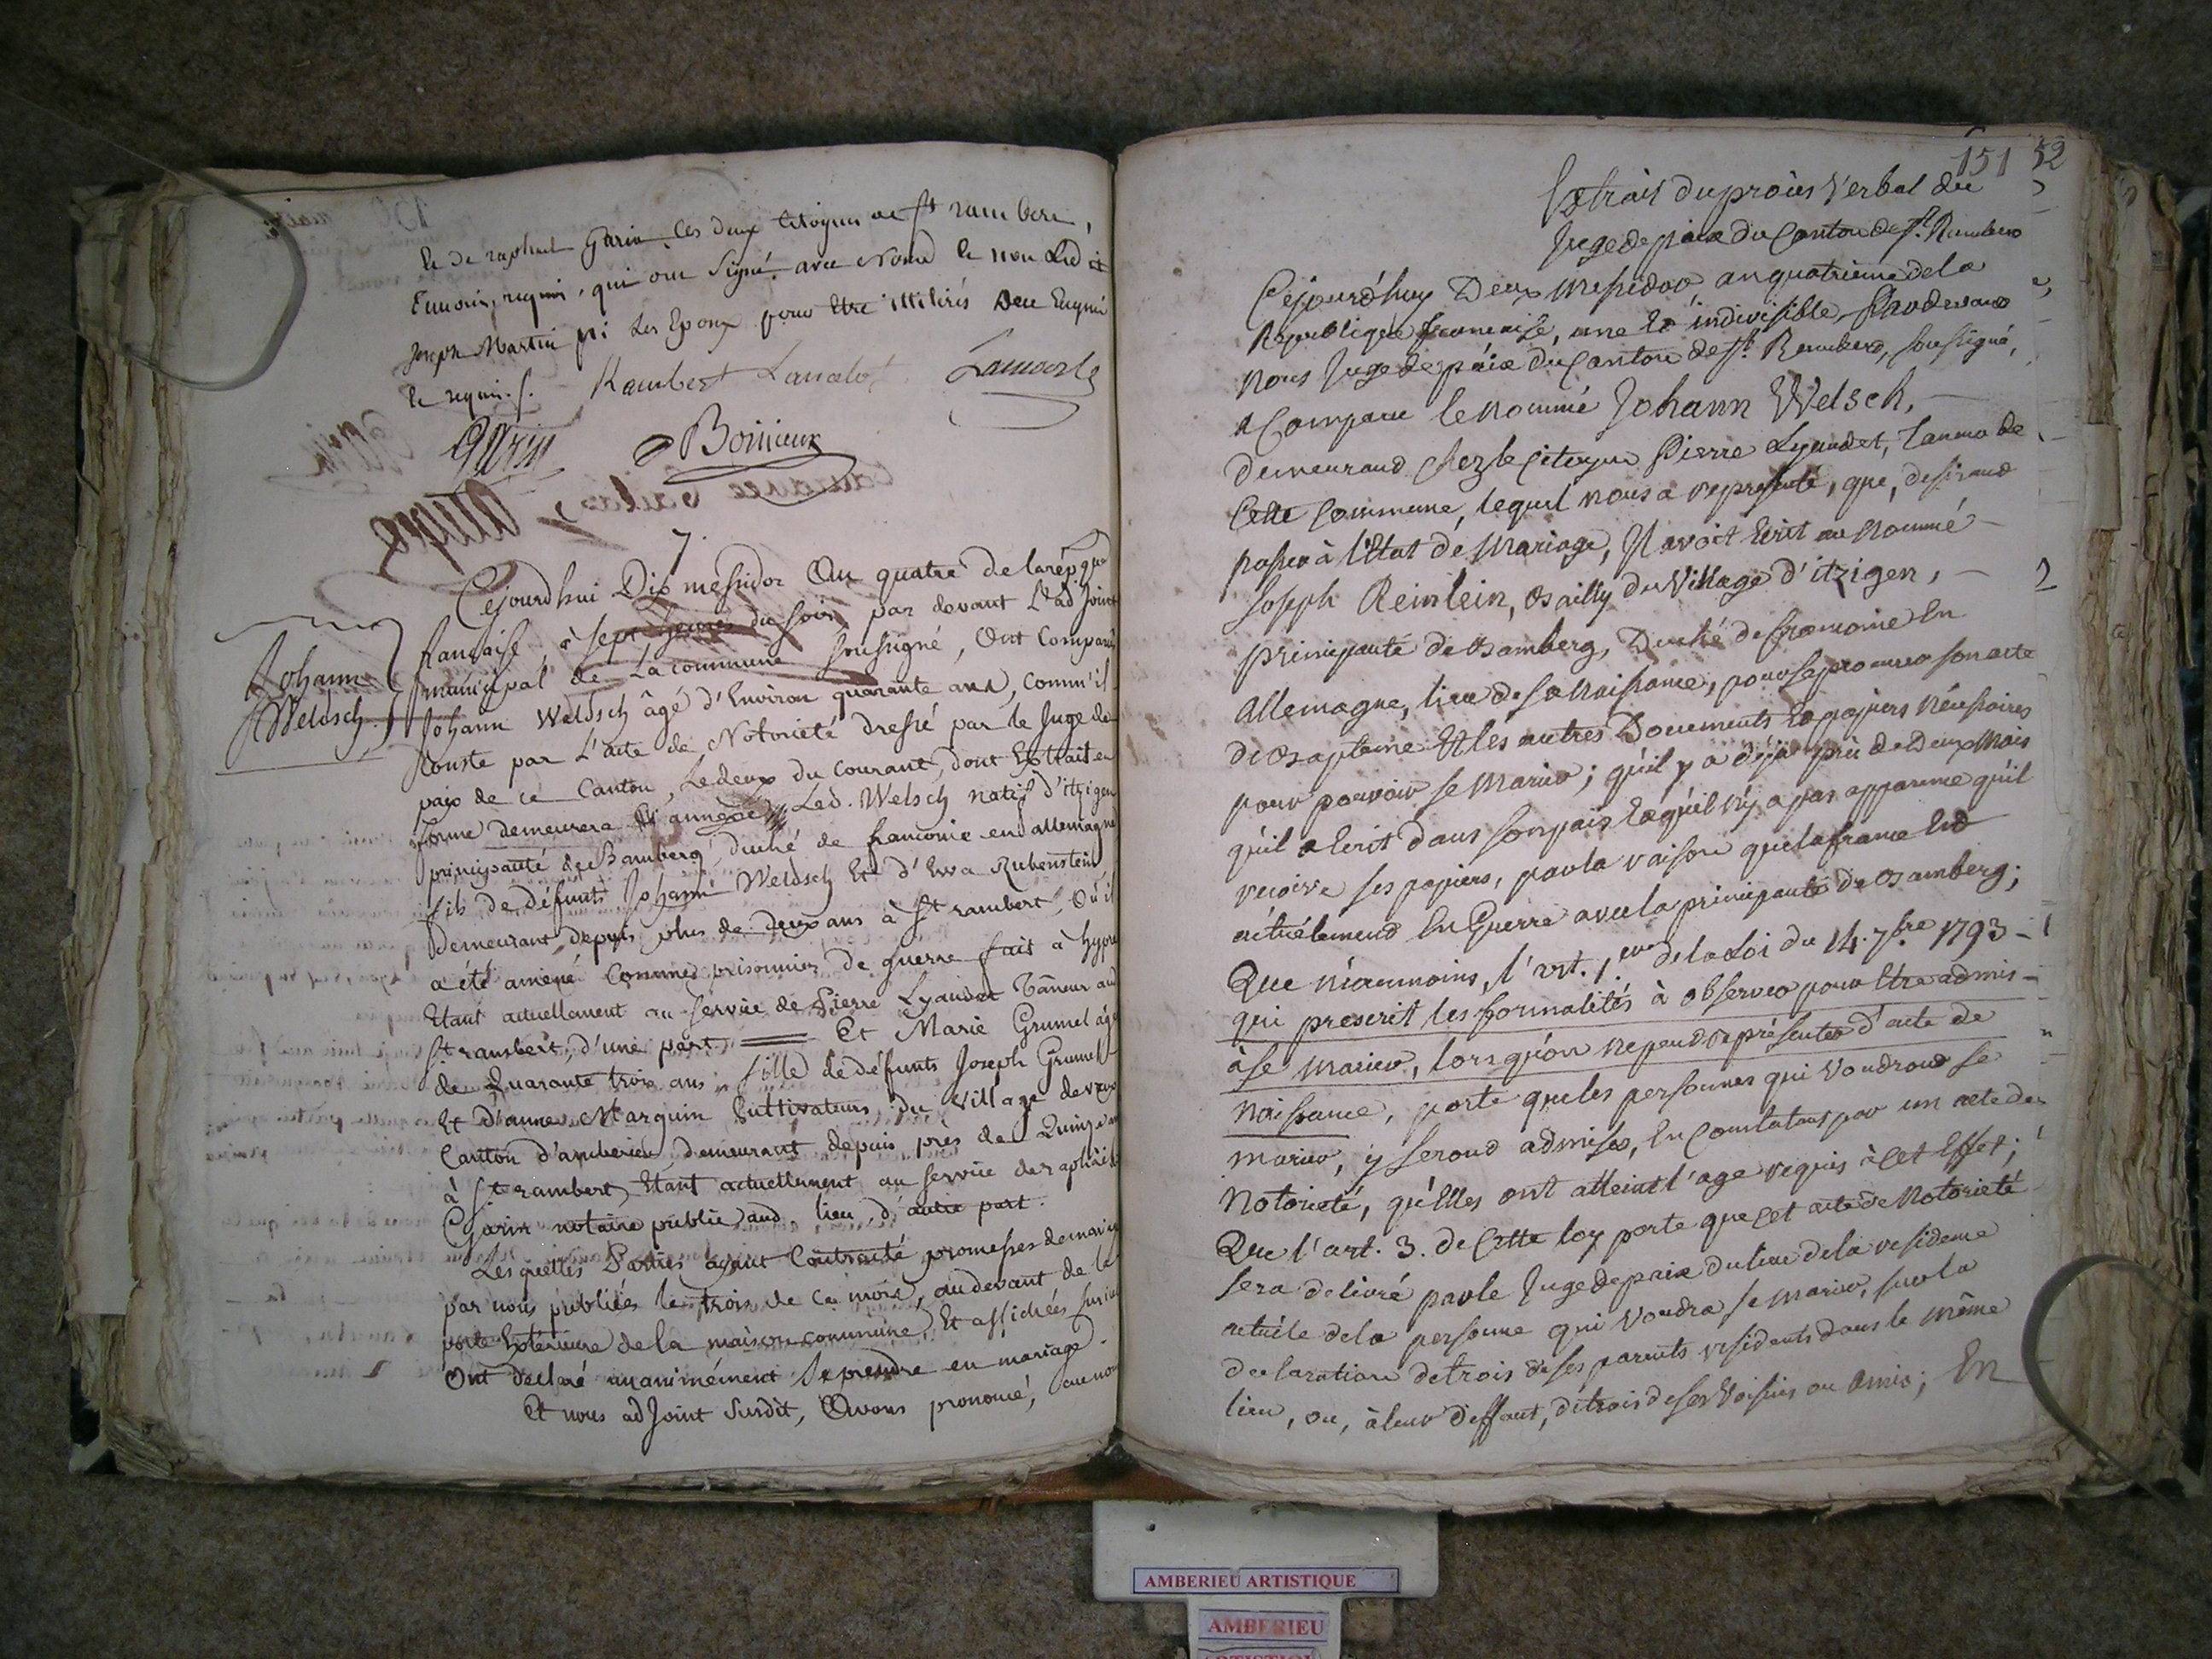 Et de raphael Garin, les deux Citoyens de St rambert,
Temoins requis, qui ont signé avec Nous et non Led it
Joseph Martin ni les Epoux pour Etre illitérés De ce Enquis
Et requis.
Rambert Lancelot
Garin
Bonieux
7.
Cejourdhui Dix messidor An quatre de larépque
française, à sept heures du soir, par devant L'adjoint
municipal de La commune soussigné, Ont Comparu
Johann
Weldsch.
Johann Weldsch âgé d'Environ quarante ans, comm'il
Conste par L'acte de Notorieté dressé par le Juge de
paix de ce Canton, Le deux du courant, dont Extrait en
forme demeurera cy annexé, Led. Welsch natif d'itzigen
principauté de Bamberg, duché de franconie en allemagne
fils de défunts Johann Weldsch Et d'Ewa Rubenstein
Demeurant depuis plus de deux ans à St rambert, Où il
a été amené Comme prisonnier de guerre fait à hypre
Etant actuellement au service de Pierre Lyaudet Tâneur aud
St rambert, d'une part. Et Marie Grumel âgée
de Quarante trois ans, fille de défunts Joseph Grumel
Et d'anne Marguin Cultivateurs du village de vaux
Canton d'amberieu, demeurant depuis près de Quinze ans
à St rambert, Etant actuellement au service de raphael
Garin notaire public aud lieu, d'autre part.
Lesquelles Parties ayant Contracté promesses demariage
par nous publiées le trois de ce mois, au devant de la
porte Extérieure de la maison commune, Et affichées
Ont déclaré unanimément se prendre en mariage.
Et nous adJoint Susdit, Avons prononcé, au nom
151 52
Extrait du procès Verbal du
Juge de paix du Canton de St. Rambert
Cejourd'huy Deux Messidor an quatrieme dela
Republique francaise, une Et indivisible, Pardevant
nous Juge de paix du Canton de St. Rambert, soussigné,
a Comparu le nommé Johann Welsch,
demeurand chez le Citoyen Pierre Lyaudet, Tanneur de
Cette Commune, lequel nous a representé, que, desirant
passer à l'Etat de Mariage, Il avoit Ecrit au Nommé
Joseph Reinlein, Bailly du Village d'itzigen,
principauté de Bamberg, Duché de franconie En
Allemagne, lieu de sa Naissance, pour se procurer son acte
de Bapteme Et les autres Documents Et papiers nécessaires
pour pouvoir se Marier; qu'il y a déja près de Deux Mois
qu'il a Ecrit dans son pais Et qu'il n'y a pas apparence qu'il
recoive ses papiers, par la raison que la france Est
actuélement En Guerre avec la principauté de Bamberg;
Que néanmoins, l'art. 1.er de la Loi du 14. 7bre 1793
qui prescrit les formalités à observer pour Etre admis
à se marier, lorsqu'on ne peut représenter d'acte de
naissance, porte que les personnes qui voudront se
marier, y seront admises, En Constatant par un acte de
Notorieté, qu'Elles ont atteint l'age requis à Cet Effet;
Que l'art. 3. de Cette loy porte que Cet acte de Notorieté
sera delivré par le Juge de paix du lieu de la residence
actuéle de la personne qui voudra se marier, sur la
declaration de trois de ses parents residents dans le même
lieu, ou, à leur deffaut, de trois de ses Voisins ou Amis; En
AMBERIEU ARTISTIQUE
AMBERIEU
ARTISTIQUE